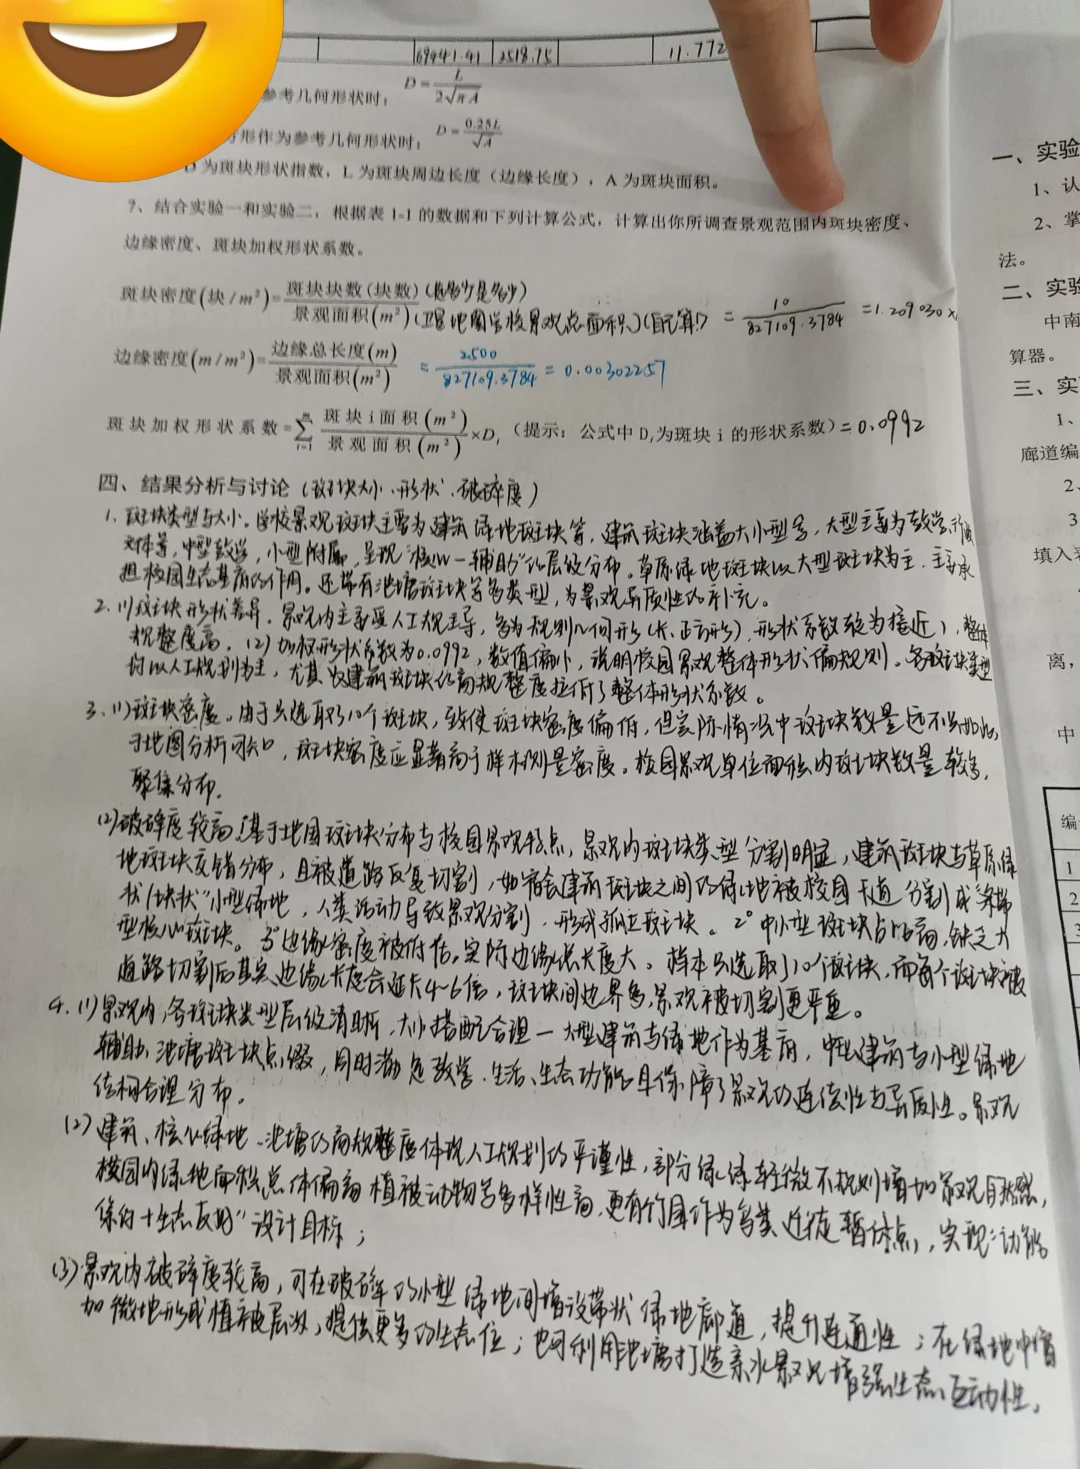 69441.41 2518.75 11.772
参考几何形状时： D=L/2√πA
形作为参考几何形状时： D=0.25L/√A
为斑块形状指数，L 为斑块周边长度（边缘长度），A 为斑块面积。
7、结合实验一和实验二，根据表 1-1 的数据和下列计算公式，计算出你所调查景观范围内斑块密度、
边缘密度、斑块加权形状系数。
斑块密度(块/m²)=斑块块数(块数)/景观面积(m²) =10/827109.3784 =1.209030×
边缘密度(m/m²)=边缘总长度(m)/景观面积(m²) =2500/827109.3784=0.00302257
斑块加权形状系数=∑ᵢ₌₁ᵐ 斑块i面积(m²)/景观面积(m²)×Dᵢ（提示：公式中 Dᵢ为斑块 i 的形状系数）=0.0992
四、结果分析与讨论（斑块大小、形状、破碎度）
1. 斑块类型与大小。学校景观斑块主要为建筑绿地斑块等，建筑斑块涵盖大小型多，大型主要为教学
文体等，中型教学，小型附属，呈现"核心一辅助"的层级分布。草原绿地斑块以大型斑块为主，主要承
担校园生态基底的作用。还带有池塘斑块等多类型，为景观异质性的补充。
2. (1)斑块形状差异。景观内主要受人工规主导，多为规则几何形(长、正方形)，形状系数较为接近1，整体
规整度高。(2)加权形状系数为0.0992，数值偏小，说明校园景观整体形状偏规则。各斑块类型
均以人工规划为主，尤其以建筑斑块的高规整度拉低了整体形状系数。
3. (1)斑块密度。由于只选取了10个斑块，致使斑块密度偏低，但实际情况中斑块数量远不止如此，
于地图分析可知，斑块密度应显著高于样本测量密度。校园景观单位面积内斑块数量较多，
聚集分布。
(2)破碎度较高。1°基于地图斑块分布与校园景观特点，景观内斑块类型分割明显，建筑斑块与草原绿
地斑块交错分布，且被道路反复切割，如宿舍建筑斑块之间的绿地被校园干道分割成"条带
状/块状"小型绿地，人类活动导致景观分割，形成孤立斑块。2°中小型斑块占比高，缺乏大
型核心斑块。3°边缘密度被低估，实际边缘总长度大。样本只选取了10个斑块，而每个斑块被
道路切割后其实边缘长度会延长4~6倍，斑块间边界多，景观被切割更严重。
4. (1)景观内，各斑块类型层级清晰，大小搭配合理一大型建筑与绿地作为基底，中型建筑与小型绿地
辅助，池塘斑块点缀，同时满足教学、生活、生态功能且保障了景观的连续性与异质性。景观
结构合理分布。
(2)建筑、核心绿地、池塘的高规整度体现人工规划的严谨性，部分绿缘轻微不规则增加景观自然感，
校园内绿地面积总体偏高植被动物等多样性高，更有竹园作为鸟类迁徙暂休点，实现"功能
综合+生态友好"设计目标；
(3)景观内破碎度较高，可在破碎的小型绿地间增设带状绿地廊道，提升连通性；在绿地中增
加微地形或植被层次，提供更多的生态位；也可利用池塘打造亲水景观增强生态互动性。
一、实验
1、认
2、掌
法。
二、实验
中南
算器。
三、实
1、
廊道编
2、
3
填入
离，
中
编
1
2
3